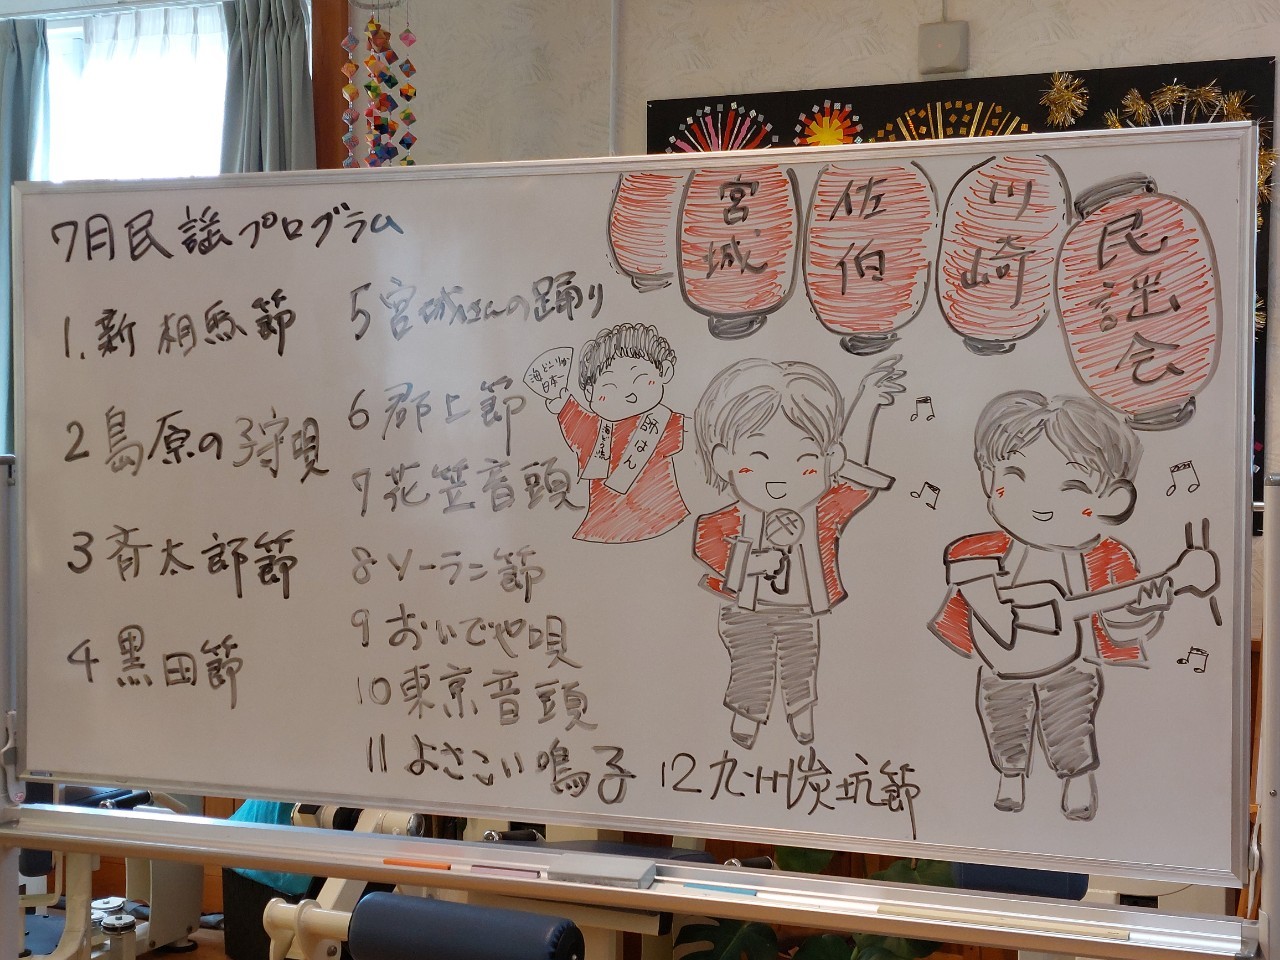 7月民謡プログラム
1.新相馬節
2島原の子守唄
3斉太郎節
4黒田節
5宮城さんの踊り
6郡上節
7花笠音頭
8ソーラン節
9おいでや唄
10東京音頭
11よさこい鳴子
12九州炭坑節
宮城
佐伯
川崎
民謡会
日本一